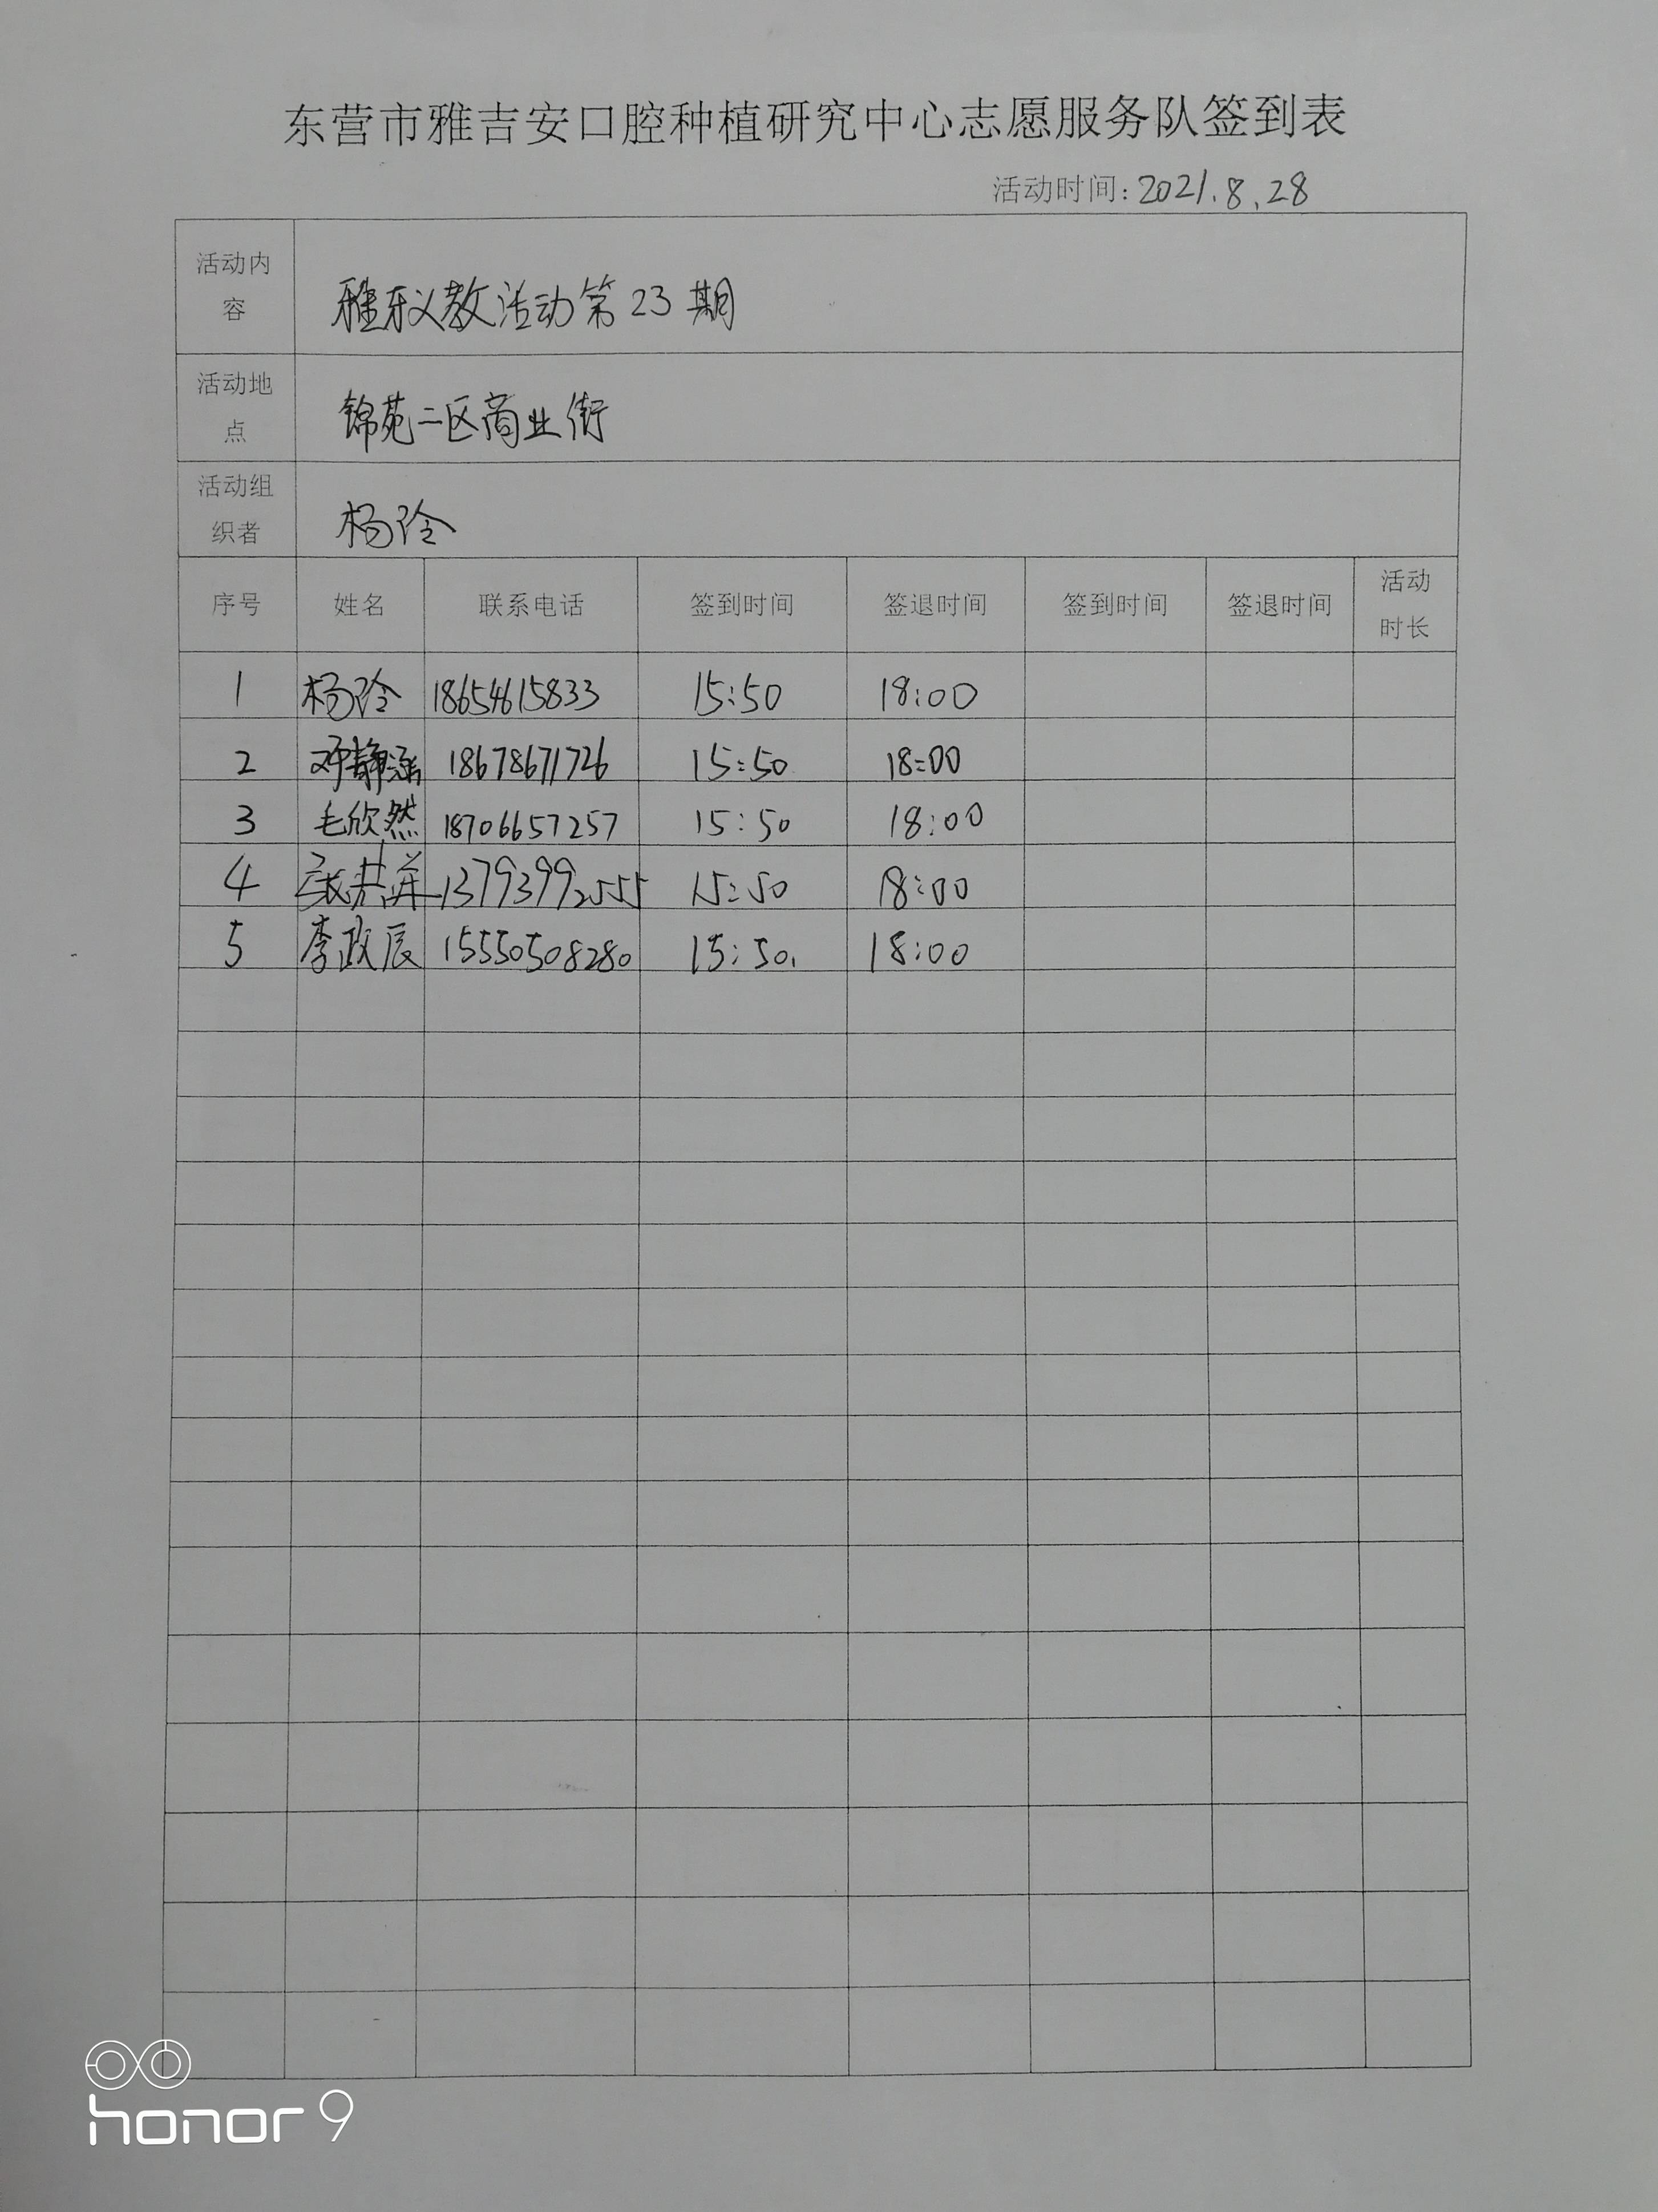 东营市雅吉安口腔种植研究中心志愿服务队签到表
活动时间: 2021.8.28
活动内容 雅乐义教活动第23期
活动地点 锦苑二区商业街
活动组织者 杨玲
序号 姓名 联系电话 签到时间 签退时间 签到时间 签退时间 活动时长
1 杨玲 18654615833 15:50 18:00
2 邓静涵 18678671726 15:50 18:00
3 毛欣然 18706657257 15:50 18:00
4 13793992555 15:50 18:00
5 李政辰 15550508280 15:50 18:00
honor 9